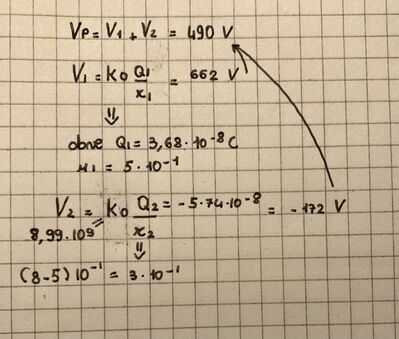 Vp = V1 + V2 = 490 V
V1 = K0 Q1/x1 = 662 V
⇓
dove Q1 = 3,68·10^-8 C
x1 = 5·10^-1
V2 = K0 Q2/x2 = -5.74·10^-8 = -172 V
8,99·10^9
⇓
(8-5)10^-1 = 3·10^-1